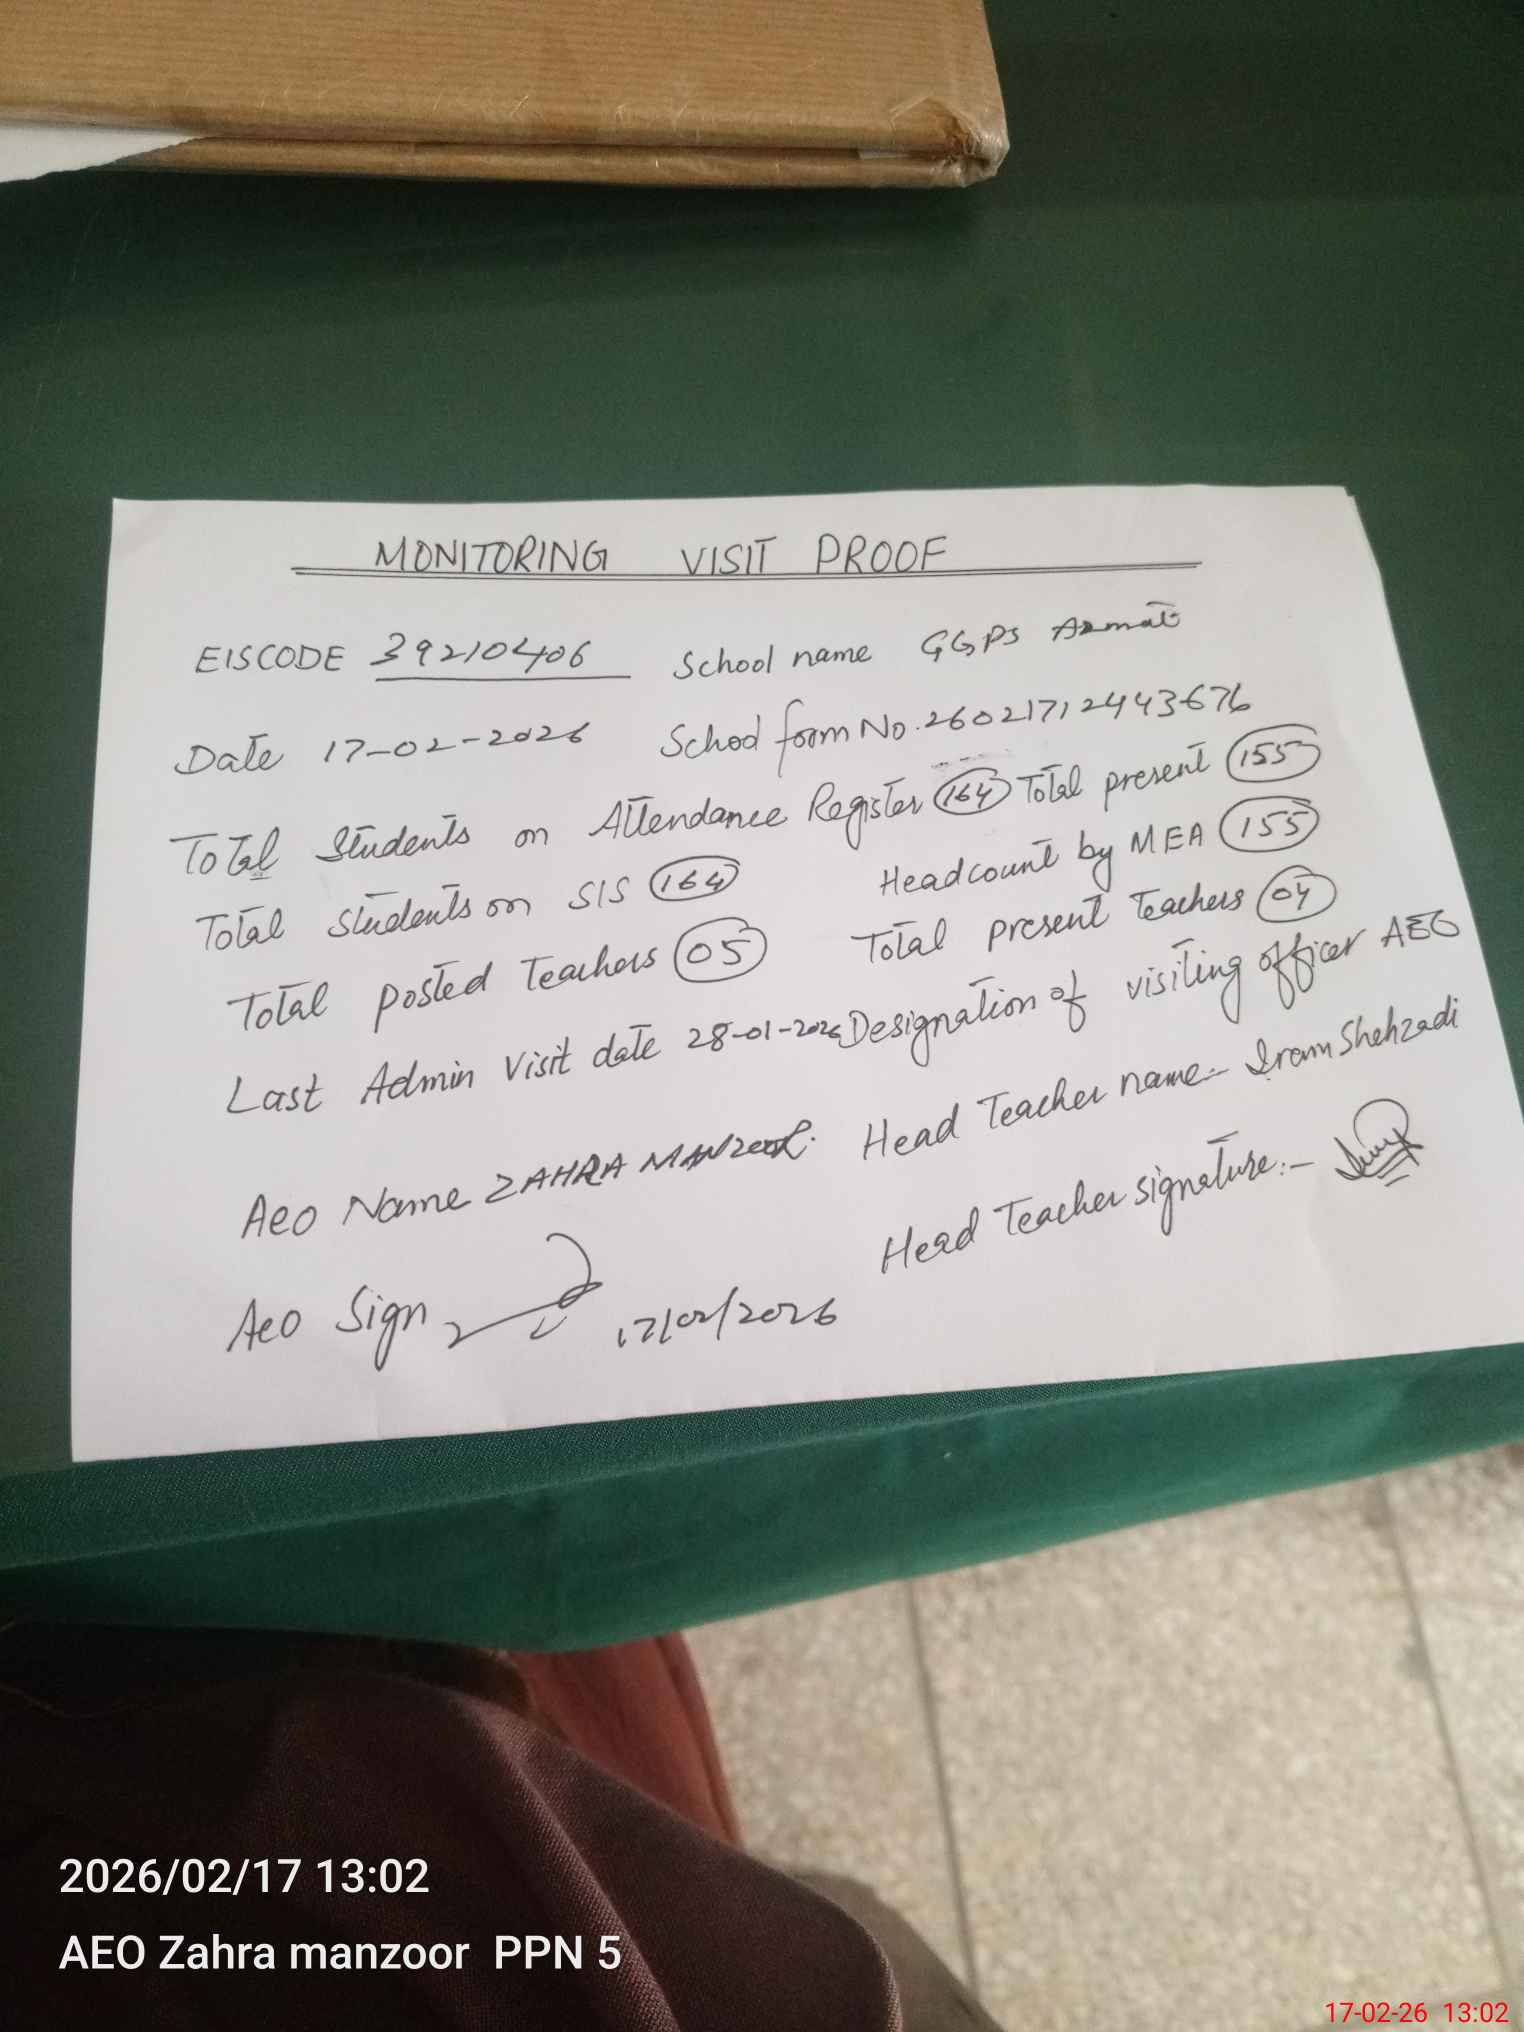 MONITORING VISIT PROOF
EISCODE 39210406 School name GGPS Azmat
Date 17-02-2026 School form No. 26021712443676
Total Students on Attendance Register 164 Total present 155
Total Students on SIS 164 Headcount by MEA 155
Total posted Teachers 05 Total present Teachers 04
Last Admin Visit date 28-01-2026 Designation of visiting officer AEO
Aeo Name ZAHRA MANZOOR. Head Teacher name:- Iram Shehzadi
Aeo Sign 17/02/2026 Head Teacher signature:-
2026/02/17 13:02
AEO Zahra manzoor PPN 5
17-02-26 13:02